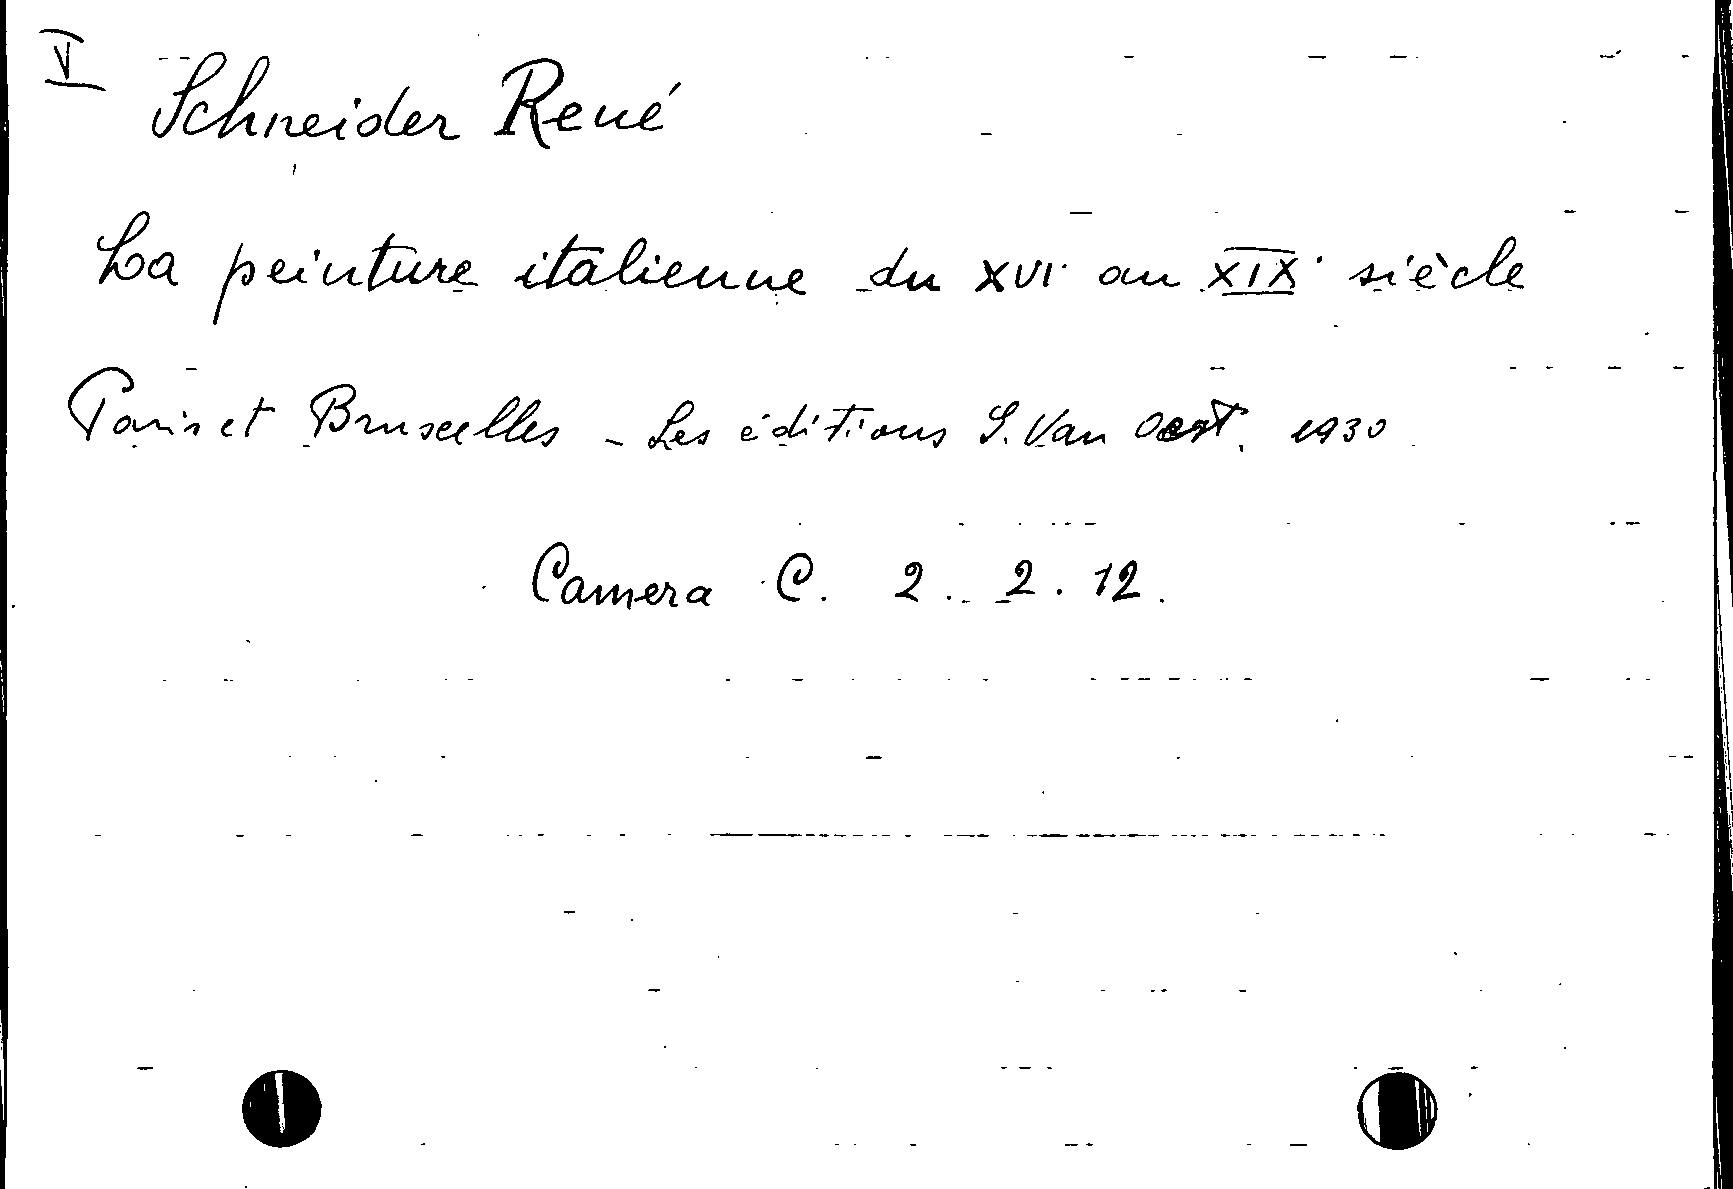 V
Schneider René
La peinture italienne du XVI au XIX siècle
Paris et Bruxelles - Les éditions S. Van Oest. 1930
Camera C. 2. 2. 12.